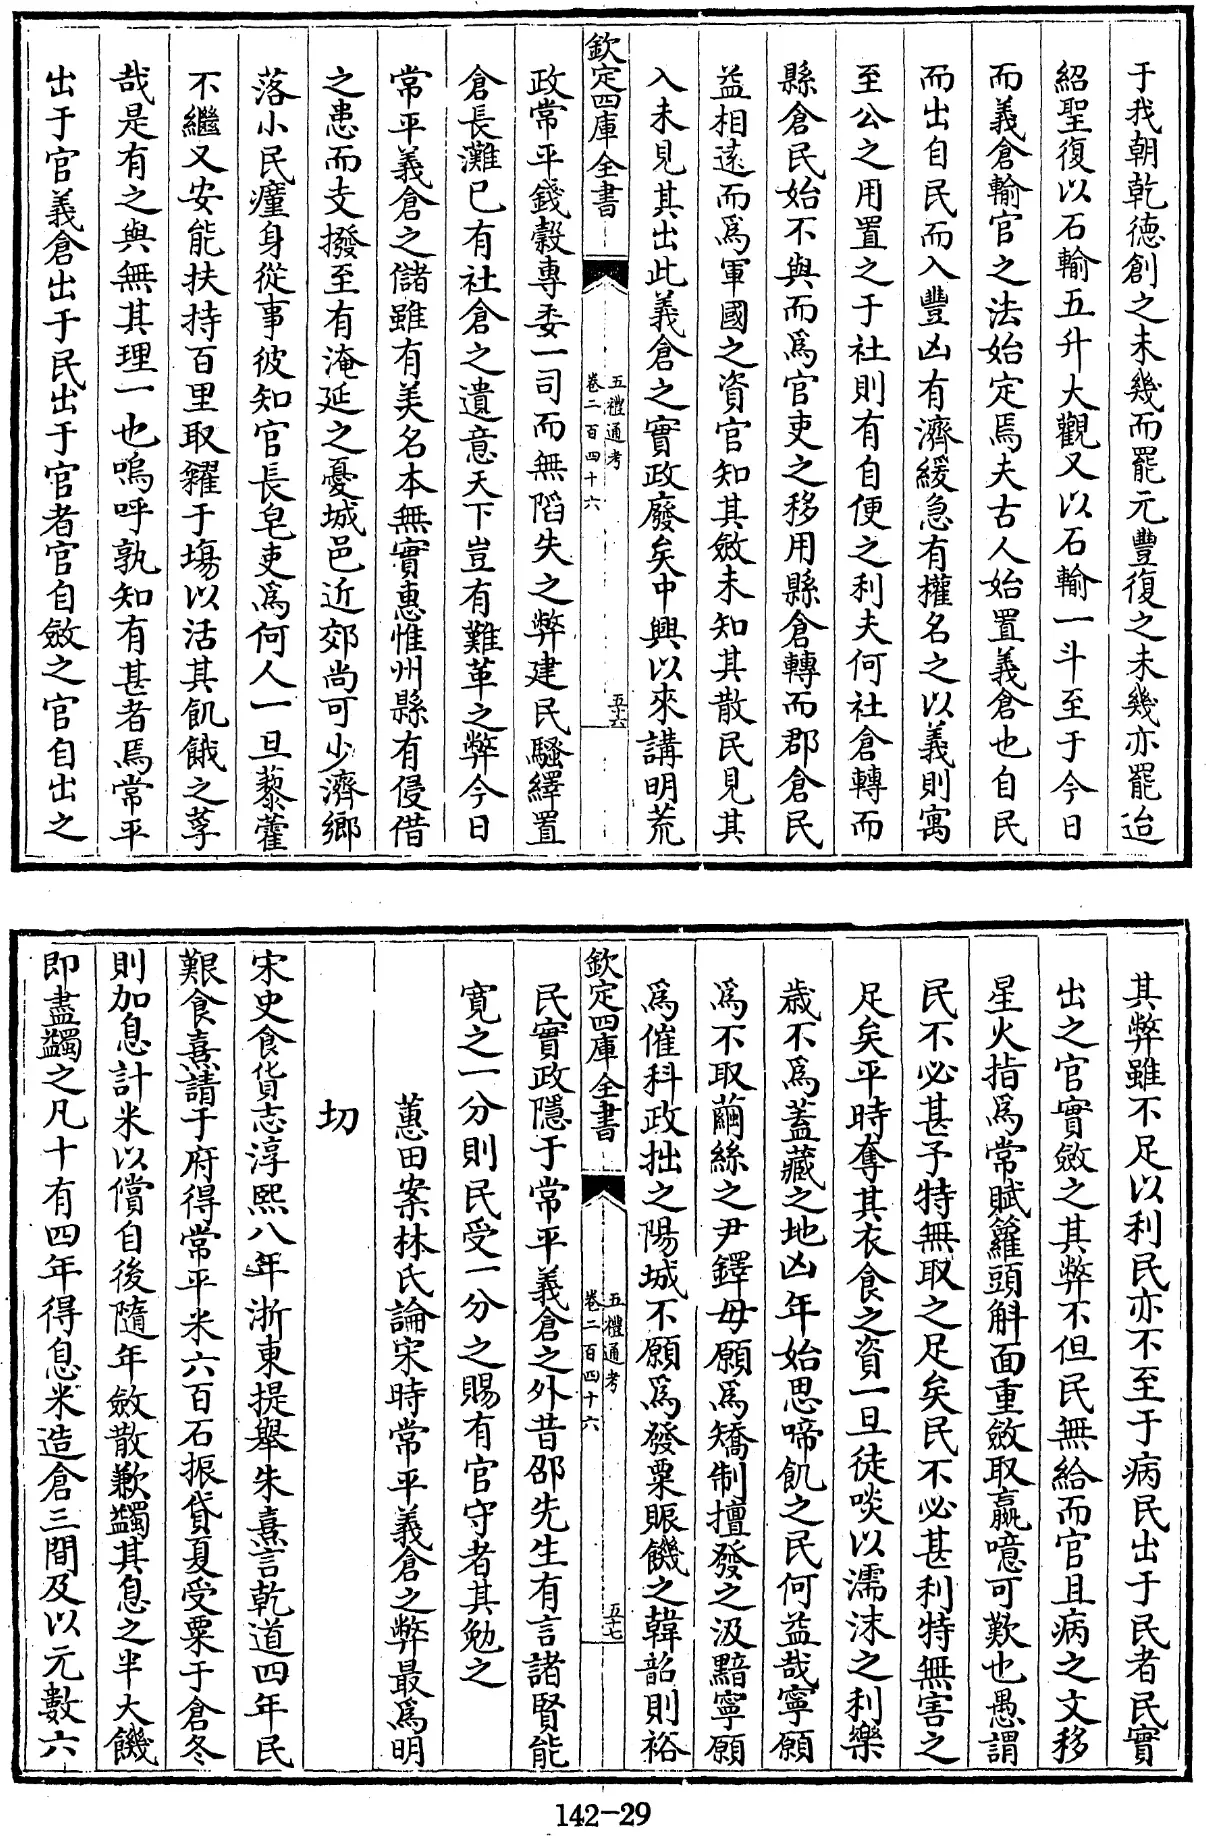 于我朝乾徳創之未幾而罷元豐復之未幾亦罷迨
紹聖復以石輸五升大觀又以石輸一斗至于今日
而義倉輸官之法始定焉夫古人始置義倉也自民
而出自民而入豐凶有濟緩急有權名之以義則寓
至公之用置之于社則有自便之利夫何社倉轉而
縣倉民始不與而爲官吏之移用縣倉轉而郡倉民
益相逺而爲軍國之資官知其斂未知其散民見其
入未見其出此義倉之實政廢矣中興以來講明荒
欽定四庫全書
五禮通考
卷二百四十六
五十六
政常平錢穀專委一司而無陷失之弊建民騷繹置
倉長灘已有社倉之遺意天下豈有難革之弊今日
常平義倉之儲雖有美名本無實惠惟州縣有侵借
之患而支撥至有淹延之憂城邑近郊尚可少濟鄉
落小民瘇身從事彼知官長皂吏爲何人一旦藜藿
不繼又安能扶持百里取糴于塲以活其飢餓之莩
哉是有之與無其理一也嗚呼孰知有甚者焉常平
出于官義倉出于民出于官者官自斂之官自出之
其弊雖不足以利民亦不至于病民出于民者民實
出之官實斂之其弊不但民無給而官且病之文移
星火指爲常賦籮頭斛面重斂取贏噫可歎也愚謂
民不必甚予特無取之足矣民不必甚利特無害之
足矣平時奪其衣食之資一旦徒啖以濡沫之利樂
歳不爲蓋藏之地凶年始思啼飢之民何益哉寧願
爲不取繭絲之尹鐸毋願爲矯制擅發之汲黯寧願
爲催科政拙之陽城不願爲發粟賑饑之韓韶則裕
欽定四庫全書
五禮通考
卷二百四十六
五十七
民實政隱于常平義倉之外昔邵先生有言諸賢能
寛之一分則民受一分之賜有官守者其勉之
蕙田案林氏論宋時常平義倉之弊最爲明
切
宋史食貨志淳熙八年浙東提舉朱熹言乾道四年民
艱食熹請于府得常平米六百石振貸夏受粟于倉冬
則加息計米以償自後隨年斂散歉蠲其息之半大饑
即盡蠲之凡十有四年得息米造倉三間及以元數六
142-29